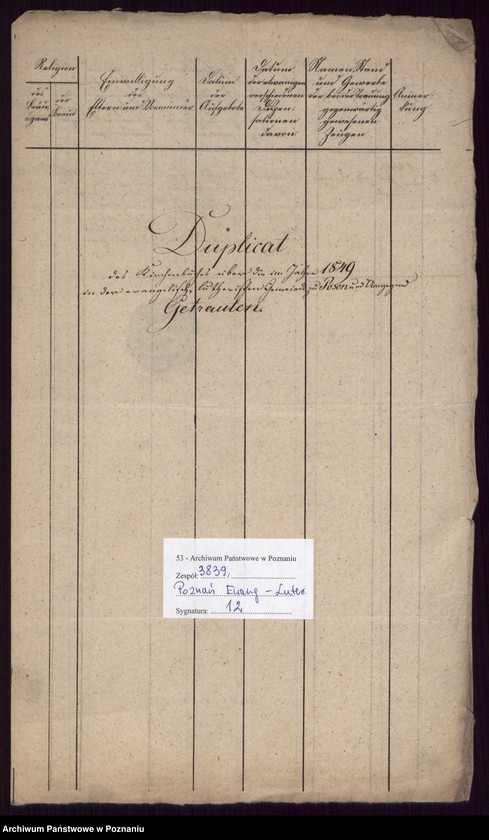 Religion
des
Bräu-
tigams
der
Braut
Einwilligung
der
Eltern und Vormünder
Datum
der
Aufgebote
Datum
der etwanigen
vorschriebenen
Dispen-
sationen
davon
Namen Stand
und Gewerbe
der bei der Trauung
gegenwärtig
gewesenen
Zeugen
Anmer-
kung
Duplicat
des Kirchenbuches über die im Jahre 1849
in der evangelisch-lutherischen Gemeinde zu Posen und Umgegend
Getrauten.
53 - Archiwum Państwowe w Poznaniu
Zespół: 3839,
Poznań Ewang - Luter.
Sygnatura: 12
Archiwum Państwowe w Poznaniu